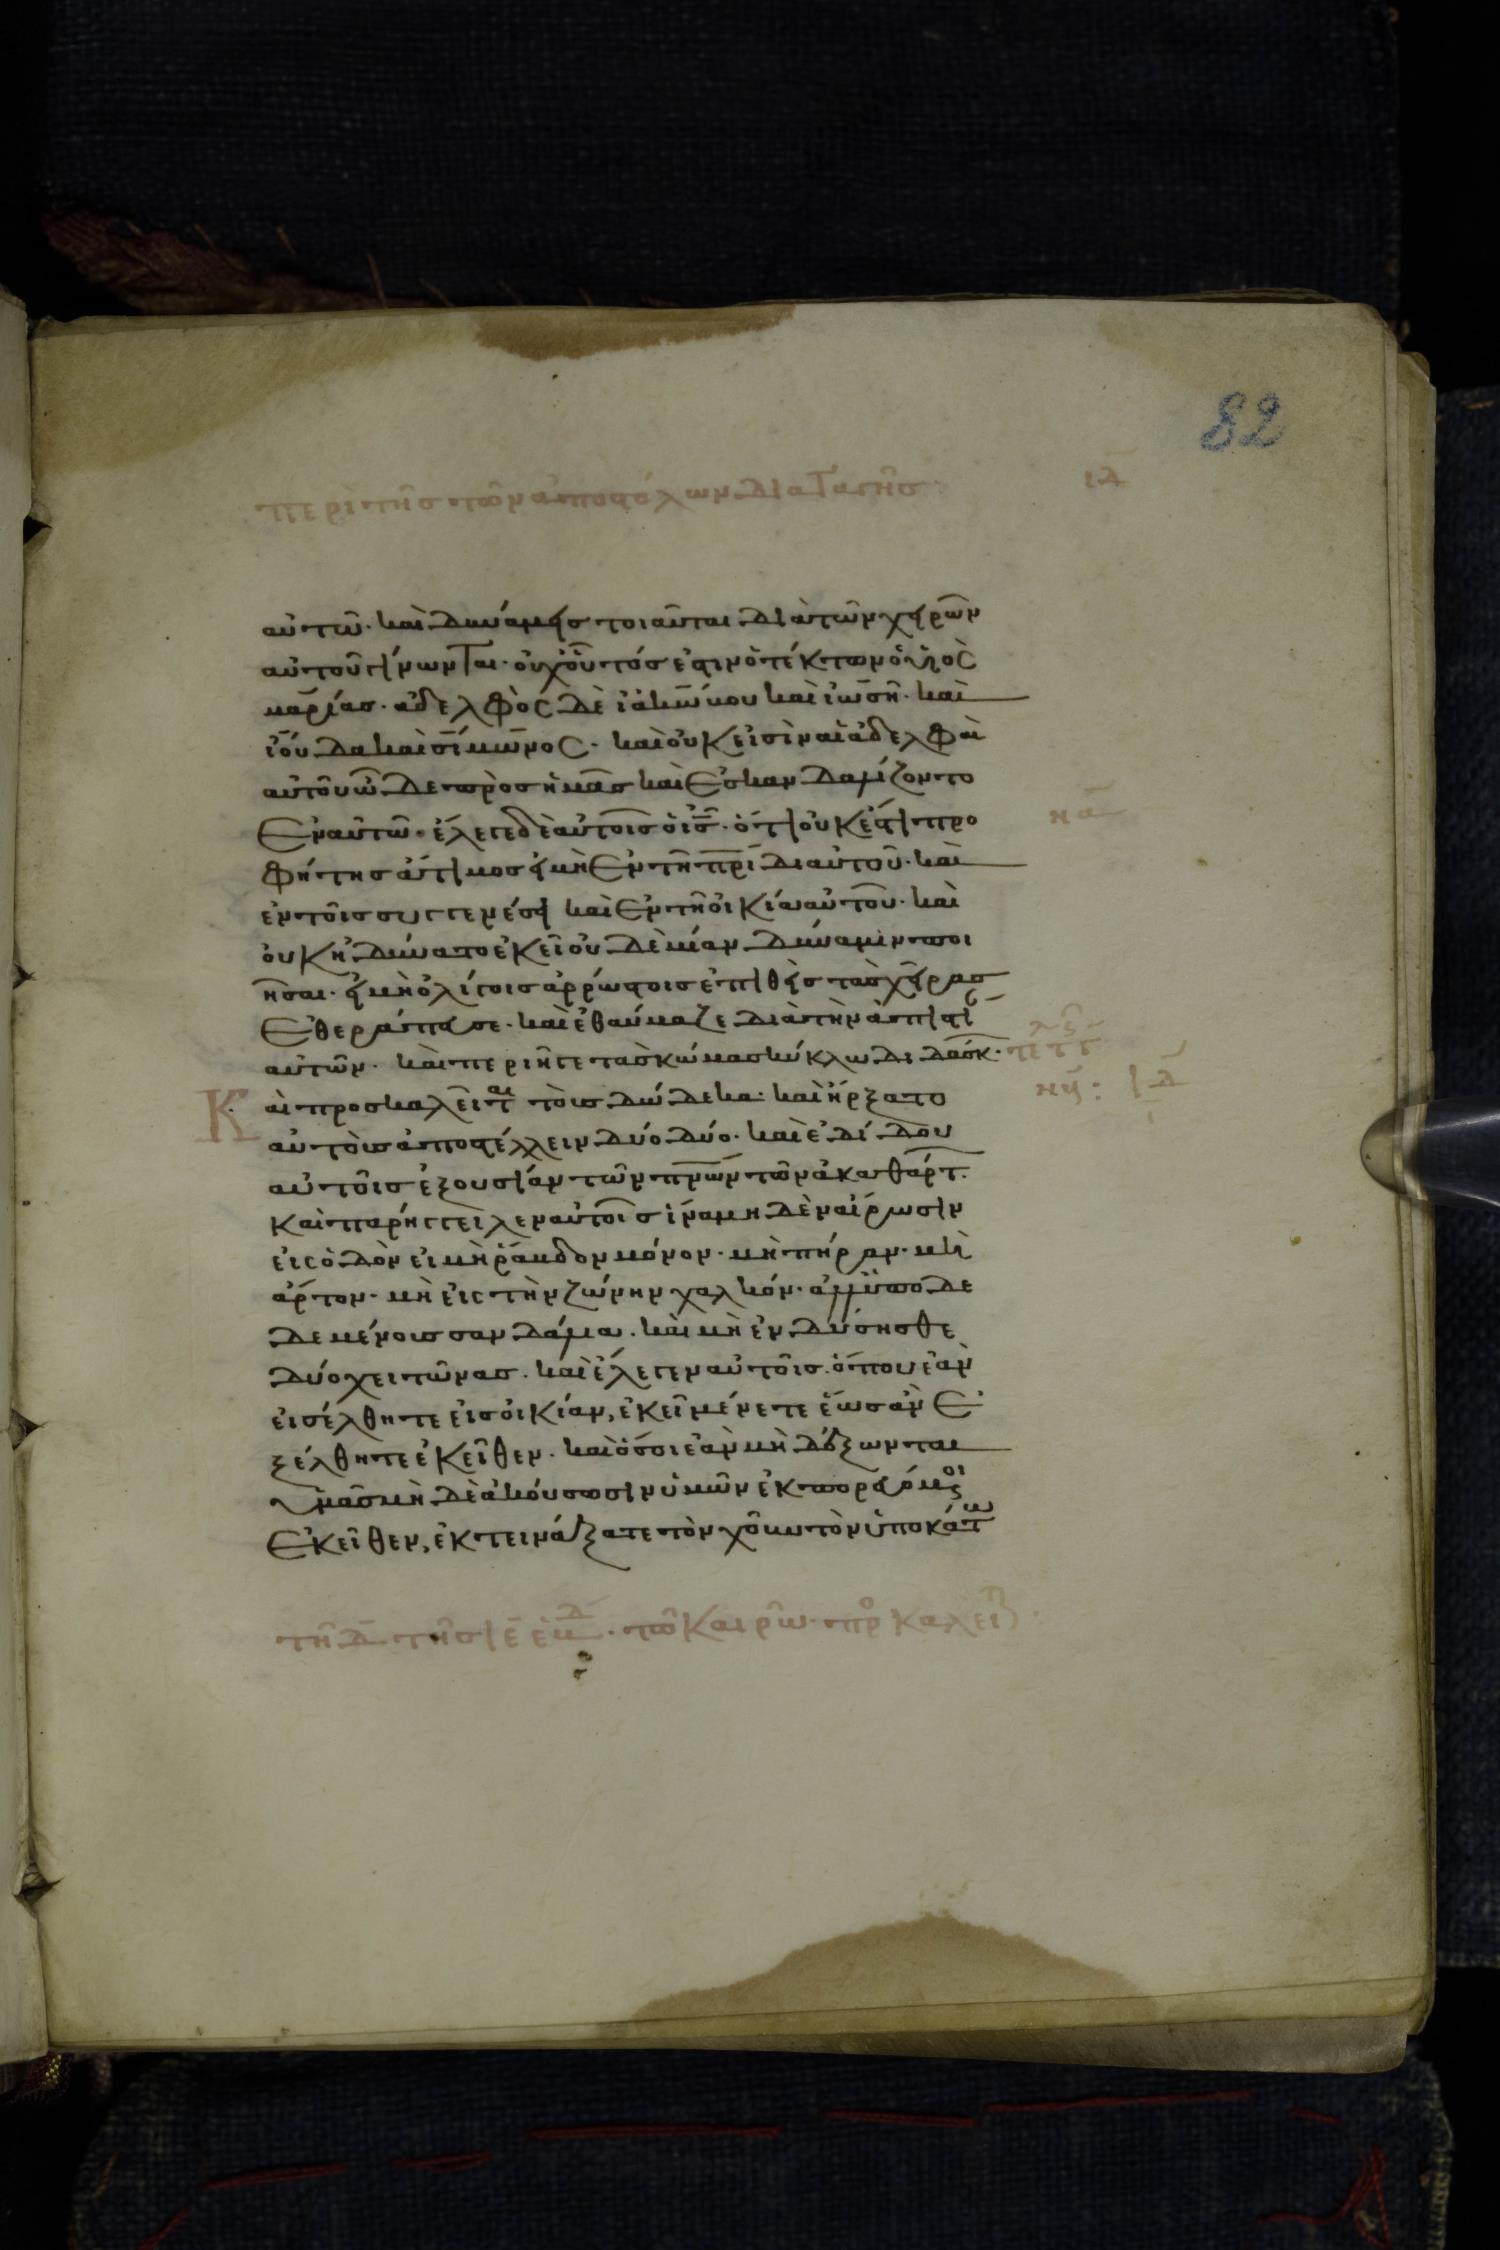 82
περὶ τῆς τῶν ἀποστόλων διαταγῆς ιδ
αὐτῶ· καὶ δυνάμεις τοιαῦται διὰ τῶν χειρῶν
αὐτοῦ γίνωνται· οὐχ οὗτός ἐστιν ὁ τέκτων ὁ υἱὸς
μαρίας· ἀδελφὸς δὲ ἰακώβου καὶ ἰωσῆ· καὶ
ἰούδα καὶ σίμωνος· καὶ οὐκ εἰσὶν αἱ ἀδελφαὶ
αὐτοῦ ὧδε πρὸς ἡμᾶς καὶ ἐσκανδαλίζοντο
ἐν αὐτῶ· ἔλεγε δὲ αὐτοῖς ὁ ις· ὅτι οὐκ ἔστι προ
φήτης ἄτιμος εἰ μὴ ἐν τῆ πρίδι αὐτοῦ· καὶ
ἐν τοῖς συγγενέσι καὶ ἐν τῆ οἰκία αὐτοῦ· καὶ
οὐκ ἠδύνατο ἐκεῖ οὐδεμίαν δύναμιν ποι
ῆσαι· εἰ μὴ ὀλίγοις ἀρρώστοις ἐπιθεὶς τὰς χεῖρας
ἐθεράπευσε· καὶ ἐθαύμαζε διὰ τὴν ἀπιστί
αὐτῶν· καὶ περιῆγε τὰς κώμας κύκλω διδάσκ·
Καὶ προσκαλεῖται τοὺς δώδεκα· καὶ ἤρξατο
αὐτοὺς ἀποστέλλειν δύο δύο· καὶ ἐδίδου
αὐτοῖς ἐξουσίαν τῶν πνων τῶν ἀκαθάρτ·
καὶ παρήγγειλεν αὐτοῖς ἵνα μηδὲν αἴρωσιν
εἰς ὁδὸν εἰ μὴ ῥάβδον μόνον· μὴ πήραν· μὴ
ἄρτον· μὴ εἰς τὴν ζώνην χαλκόν· ἀλλ' ὑποδε
δεμένους σανδάλια· καὶ μὴ ἐνδύσησθε
δύο χειτῶνας· καὶ ἔλεγεν αὐτοῖς· ὅπου ἐὰν
εἰσέλθητε εἰς οἰκίαν, ἐκεῖ μένετε ἕως ἂν ἐ
ξέλθητε ἐκεῖθεν· καὶ ὅσοι ἐὰν μὴ δέξωνται
ὑμᾶς μηδὲ ἀκούσωσιν ὑμῶν ἐκπορευόμενοι
ἐκεῖθεν, ἐκτεινάξατε τὸν χοῦν τὸν ὑποκάτω
τῆ δ τῆς ιε ἑβδ· τῶ καιρῶ· προσκαλεῖτ